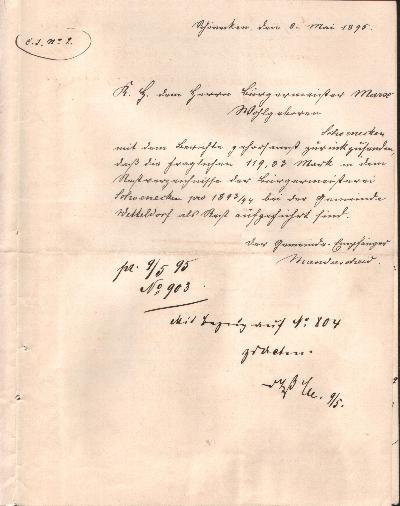 Schönecken, den 8. Mai 1895.
C. J. No 2.
K. H. dem Herrn Bürgermeister Marx
Wohlgeboren
Schoenecken
mit dem Berichte gehorsamst zurückzusenden,
daß die fraglichen 119,83 Mark in dem
Restverzeichnisse der Bürgermeisterei
Schoenecken pro 1893/94 bei der Gemeinde
Wetteldorf als Rest aufgeführt sind.
Der Gemeinde-Empfänger
pr. 9/5 95
No 903
Mit Bezug auf No 804
zu den Acten.
9/5.